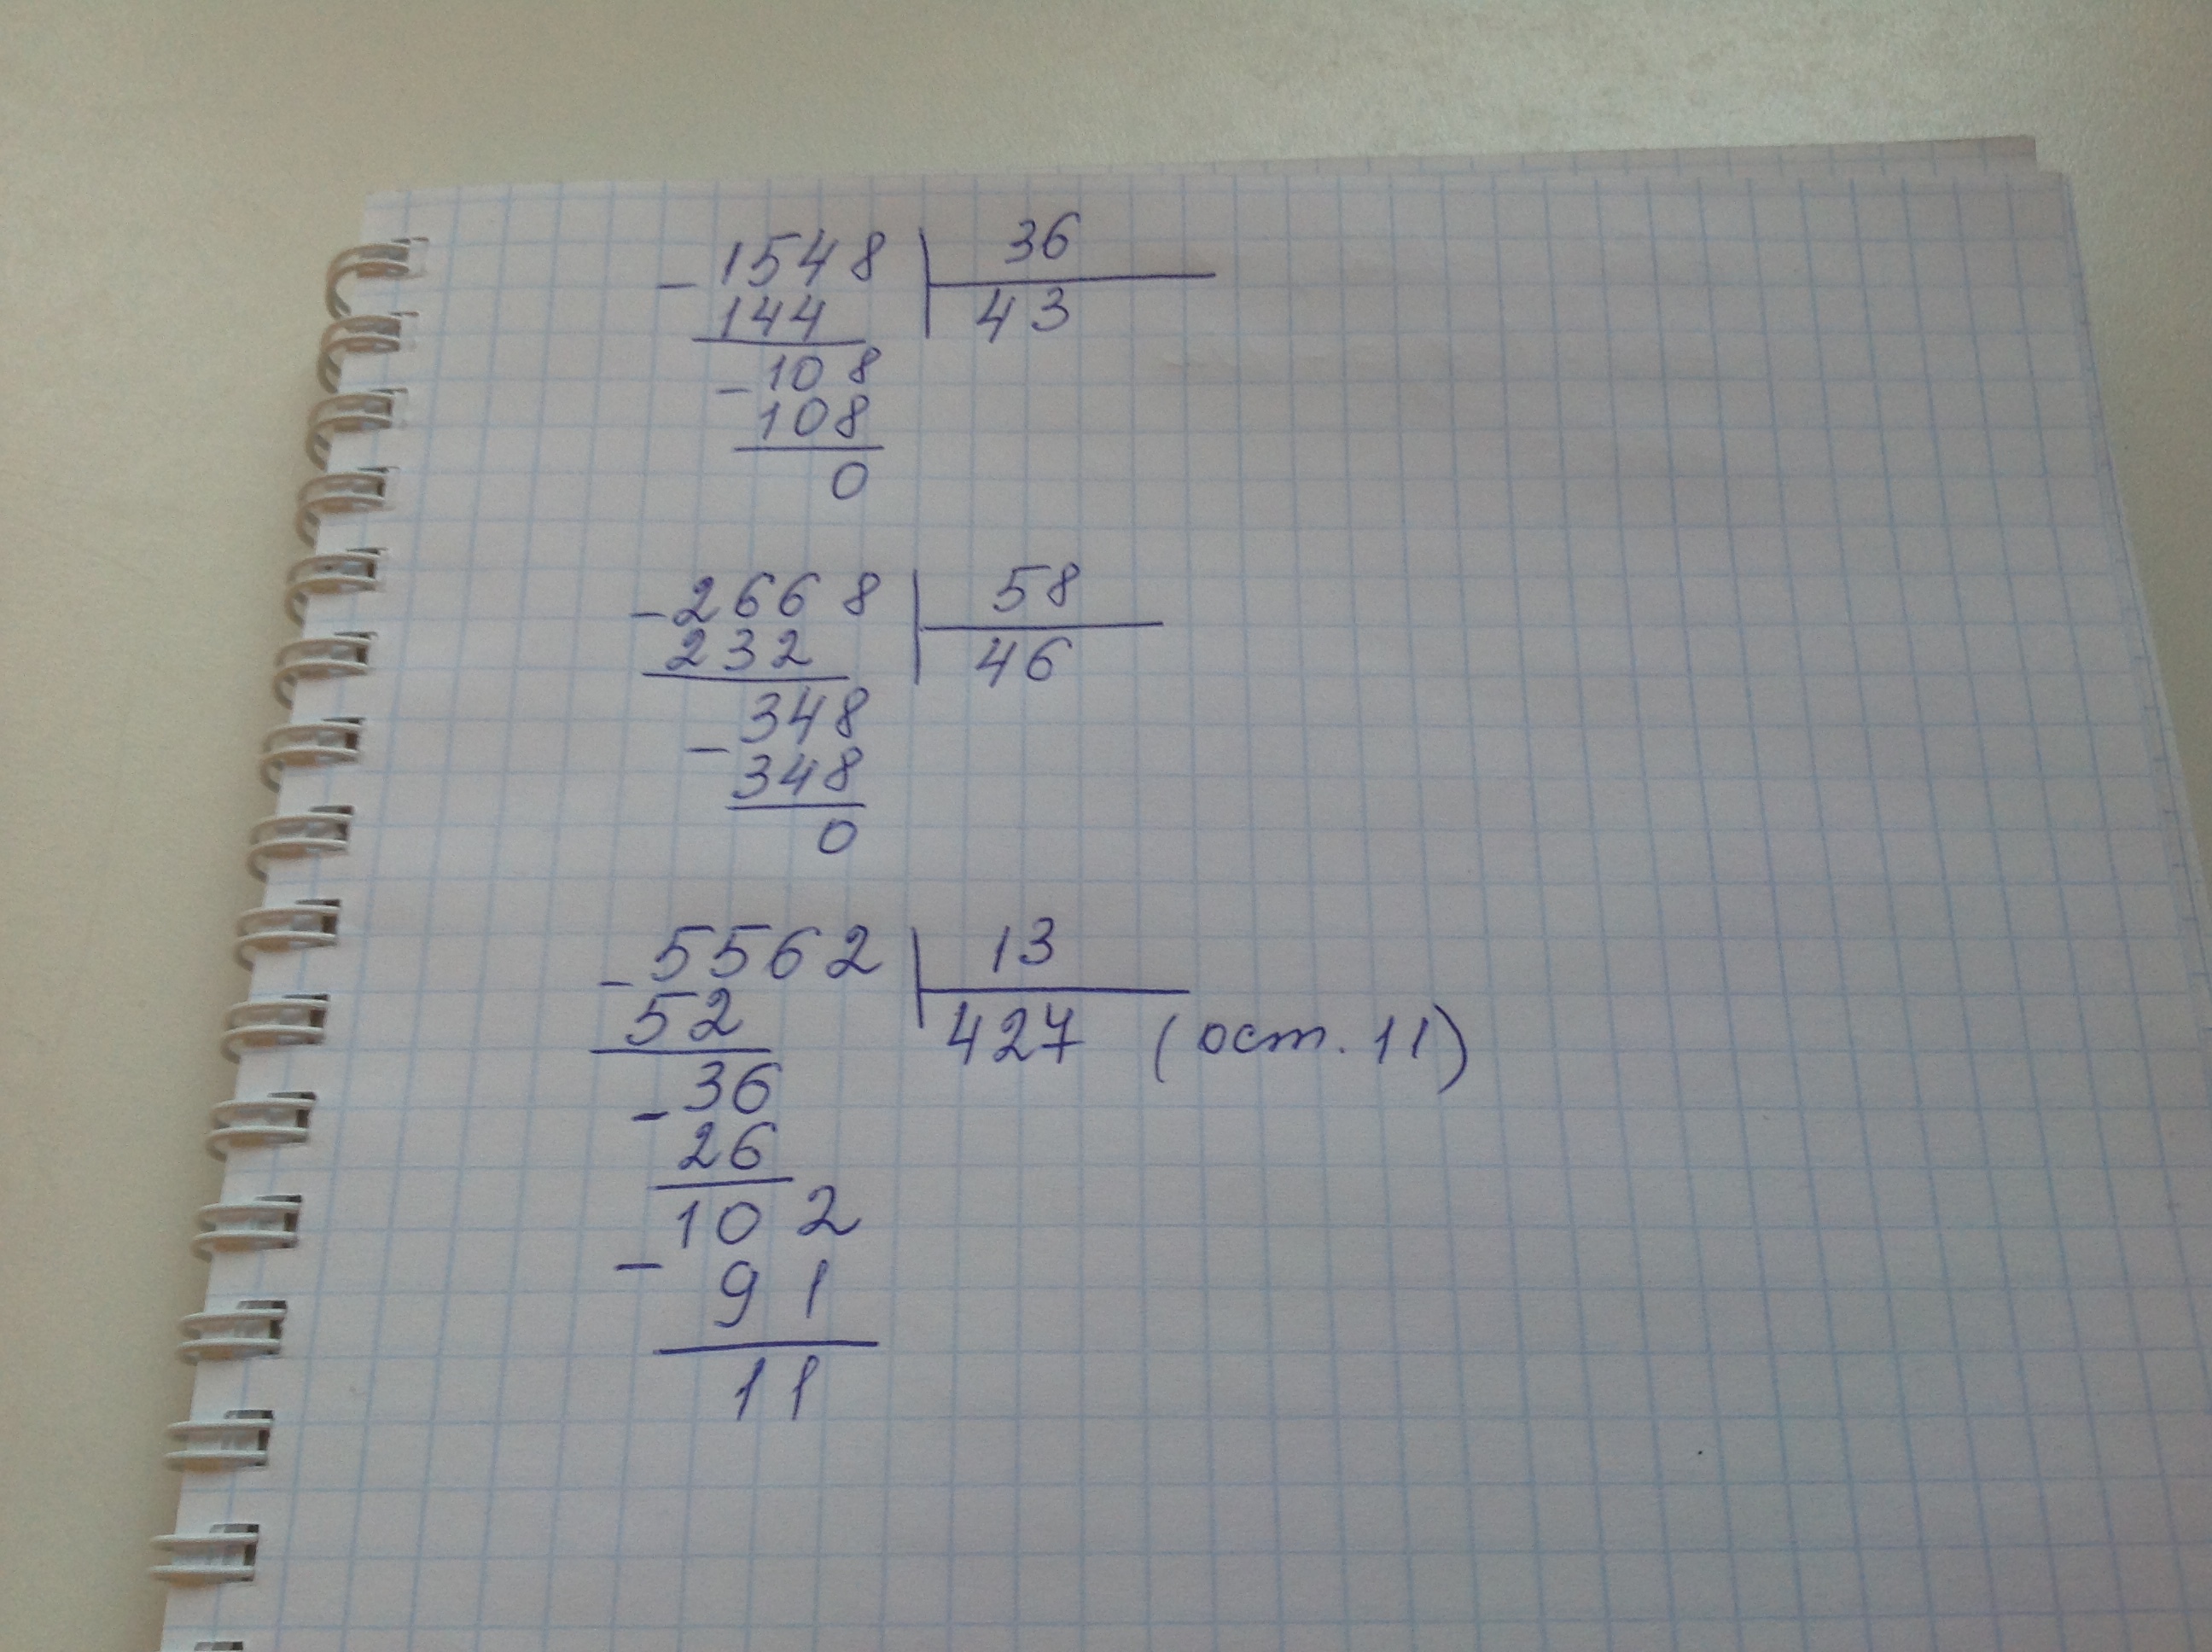 - 1548 | 36
144 | 43
- 108
108
0
- 2668 | 58
232 | 46
- 348
348
0
- 5562 | 13
52 | 427 (ост. 11)
- 36
26
- 102
91
11